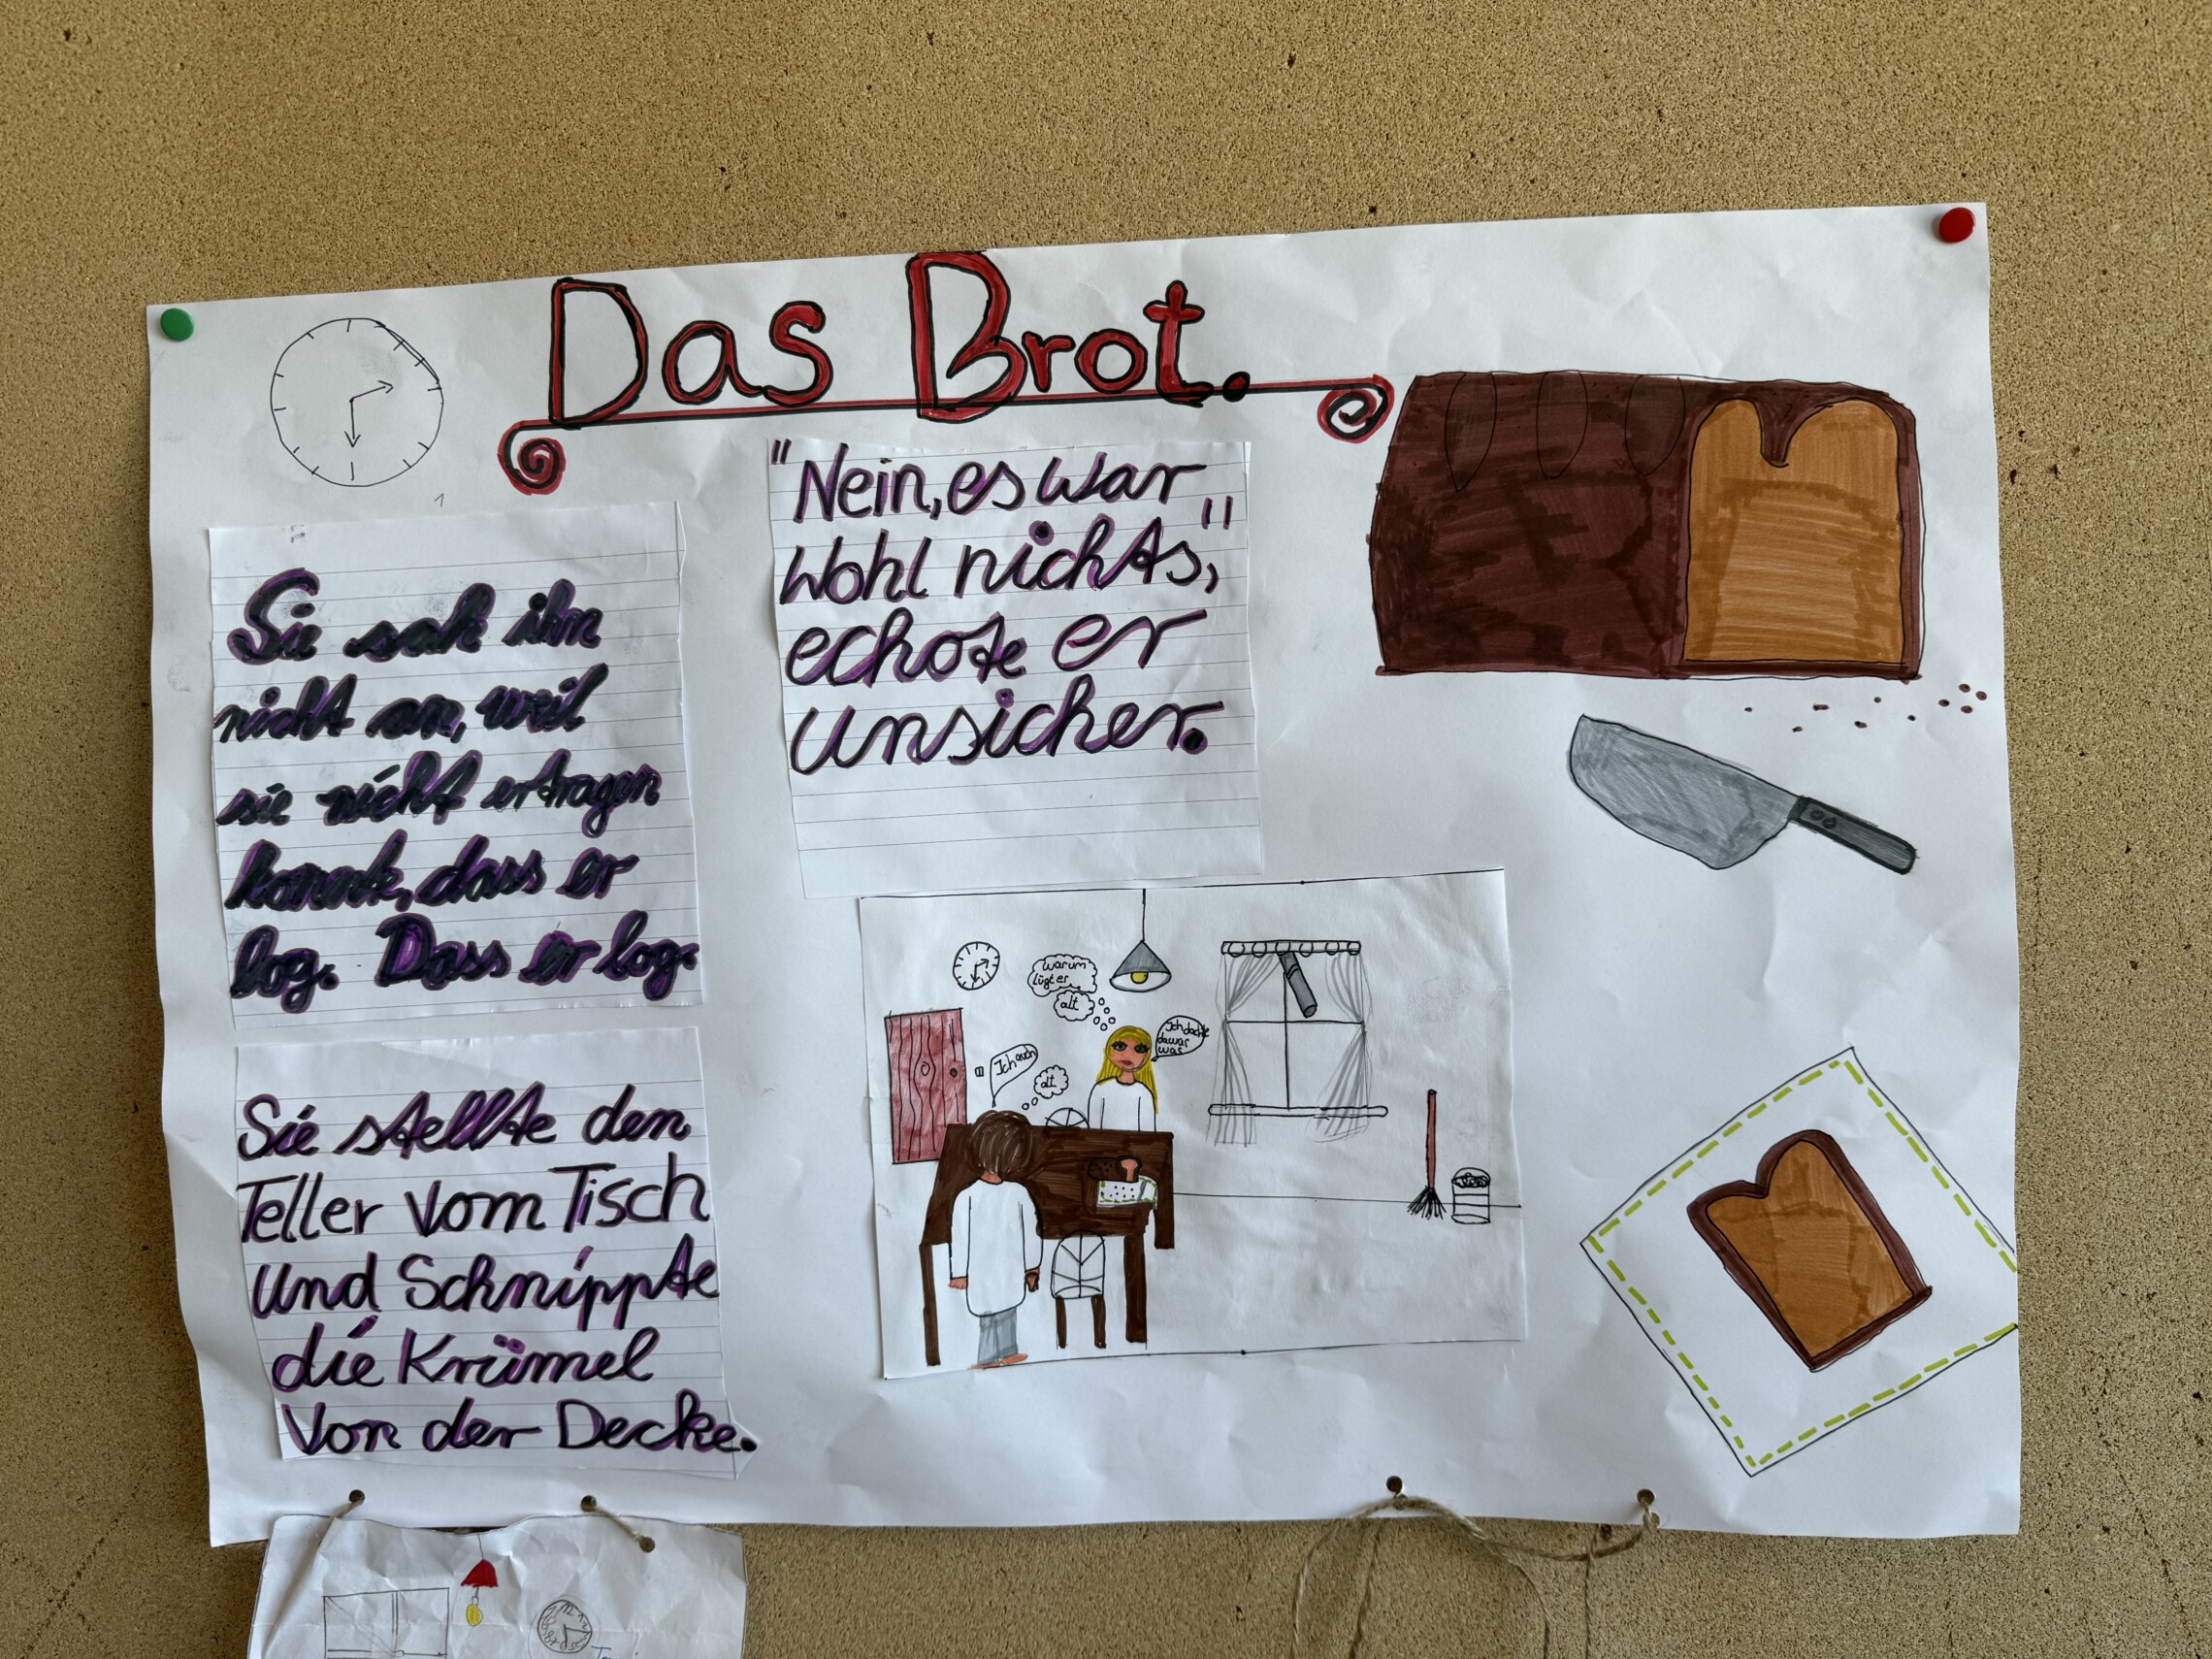 Das Brot.
"Nein, es war
Wohl nichts,"
echote er
unsicher.
Sie sah ihn
nicht an, weil
sie nicht ertragen
konnte, dass er
log. Dass er log.
Sie stellte den
Teller vom Tisch
und Schnippte
die Krümel
Von der Decke.
warum
lügt er
alt
Ich dachte
da war
was
Ich auch
alt